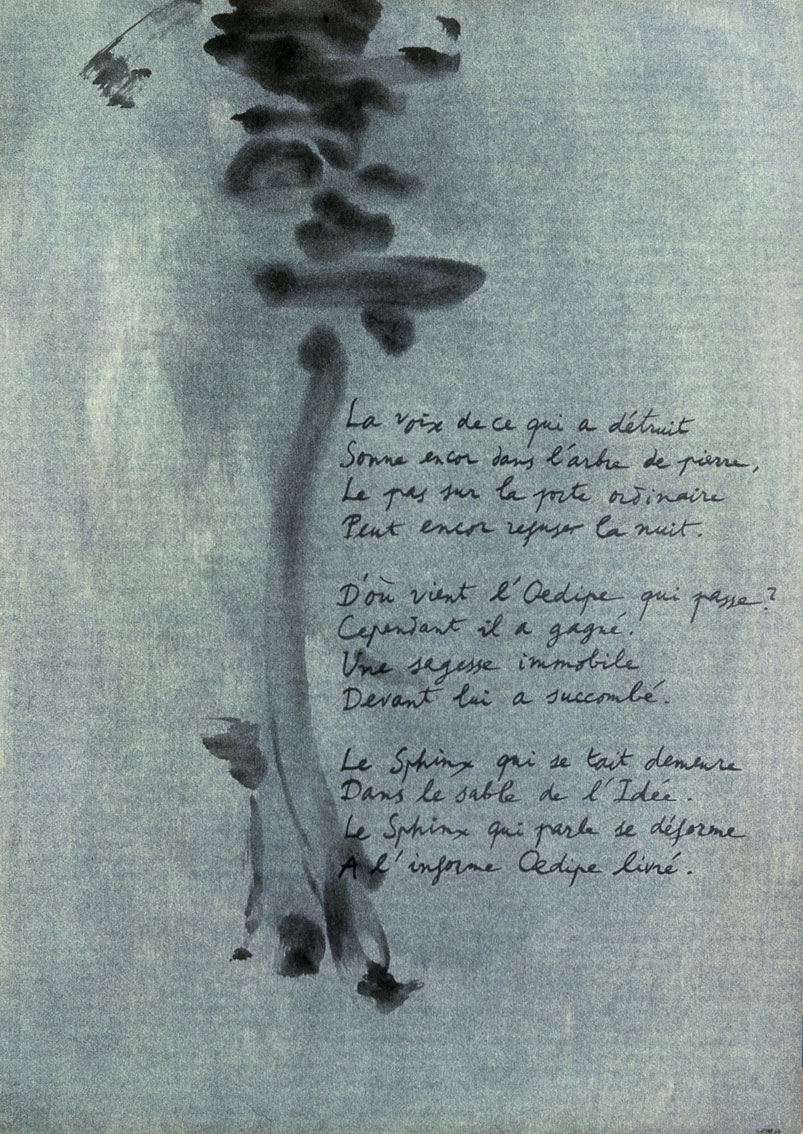 La voix de ce qui a détruit
Sonne encor dans l'arbre de pierre,
Le pas sur la porte ordinaire
Peut encor refuser la nuit.
D'où vient l'Oedipe qui passe?
Cependant il a gagné.
Une sagesse immobile
Devant lui a succombé.
Le Sphinx qui se tait demeure
Dans le sable de l'Idée.
Le Sphinx qui parle se déforme
A l'informe Oedipe livré.